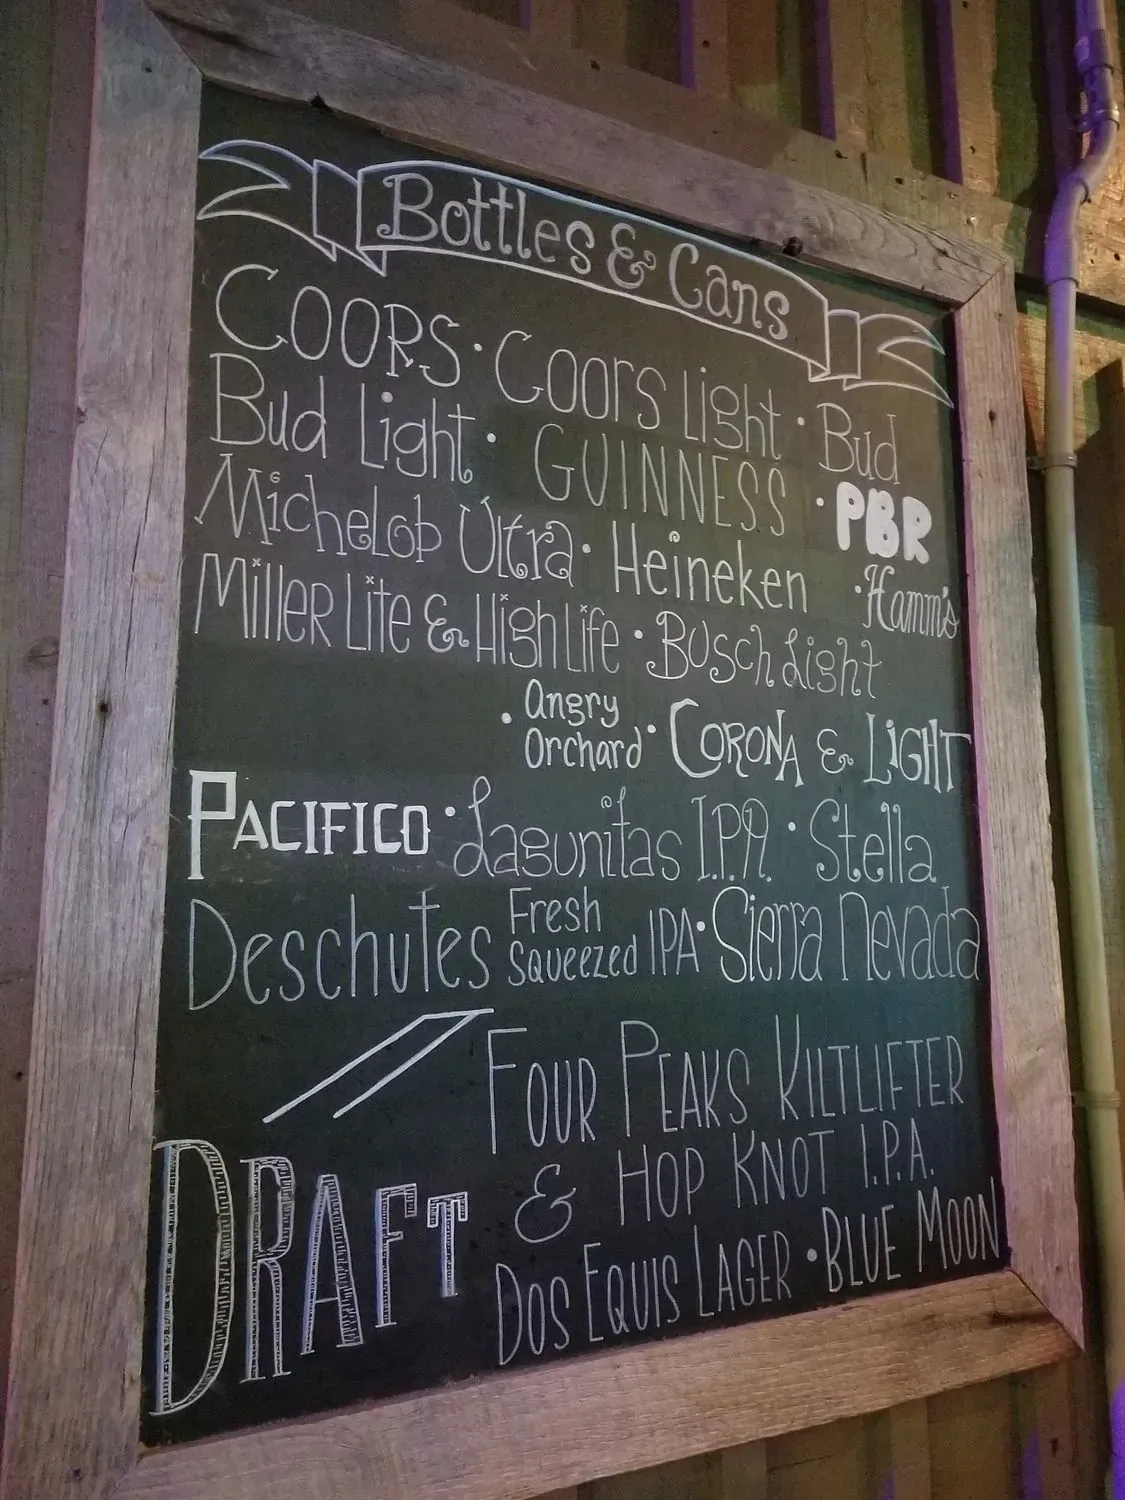 Bottles & Cans
COORS · Coors Light · Bud
Bud Light · GUINNESS · PBR
Michelob Ultra · Heineken · Hamm's
Miller Lite & High Life · Busch Light
· Angry Orchard · CORONA & LIGHT
PACIFICO · Lagunitas I.P.A. · Stella
Deschutes Fresh Squeezed IPA · Sierra Nevada
DRAFT
FOUR PEAKS KILTLIFTER
& HOP KNOT I.P.A.
DOS EQUIS LAGER · BLUE MOON